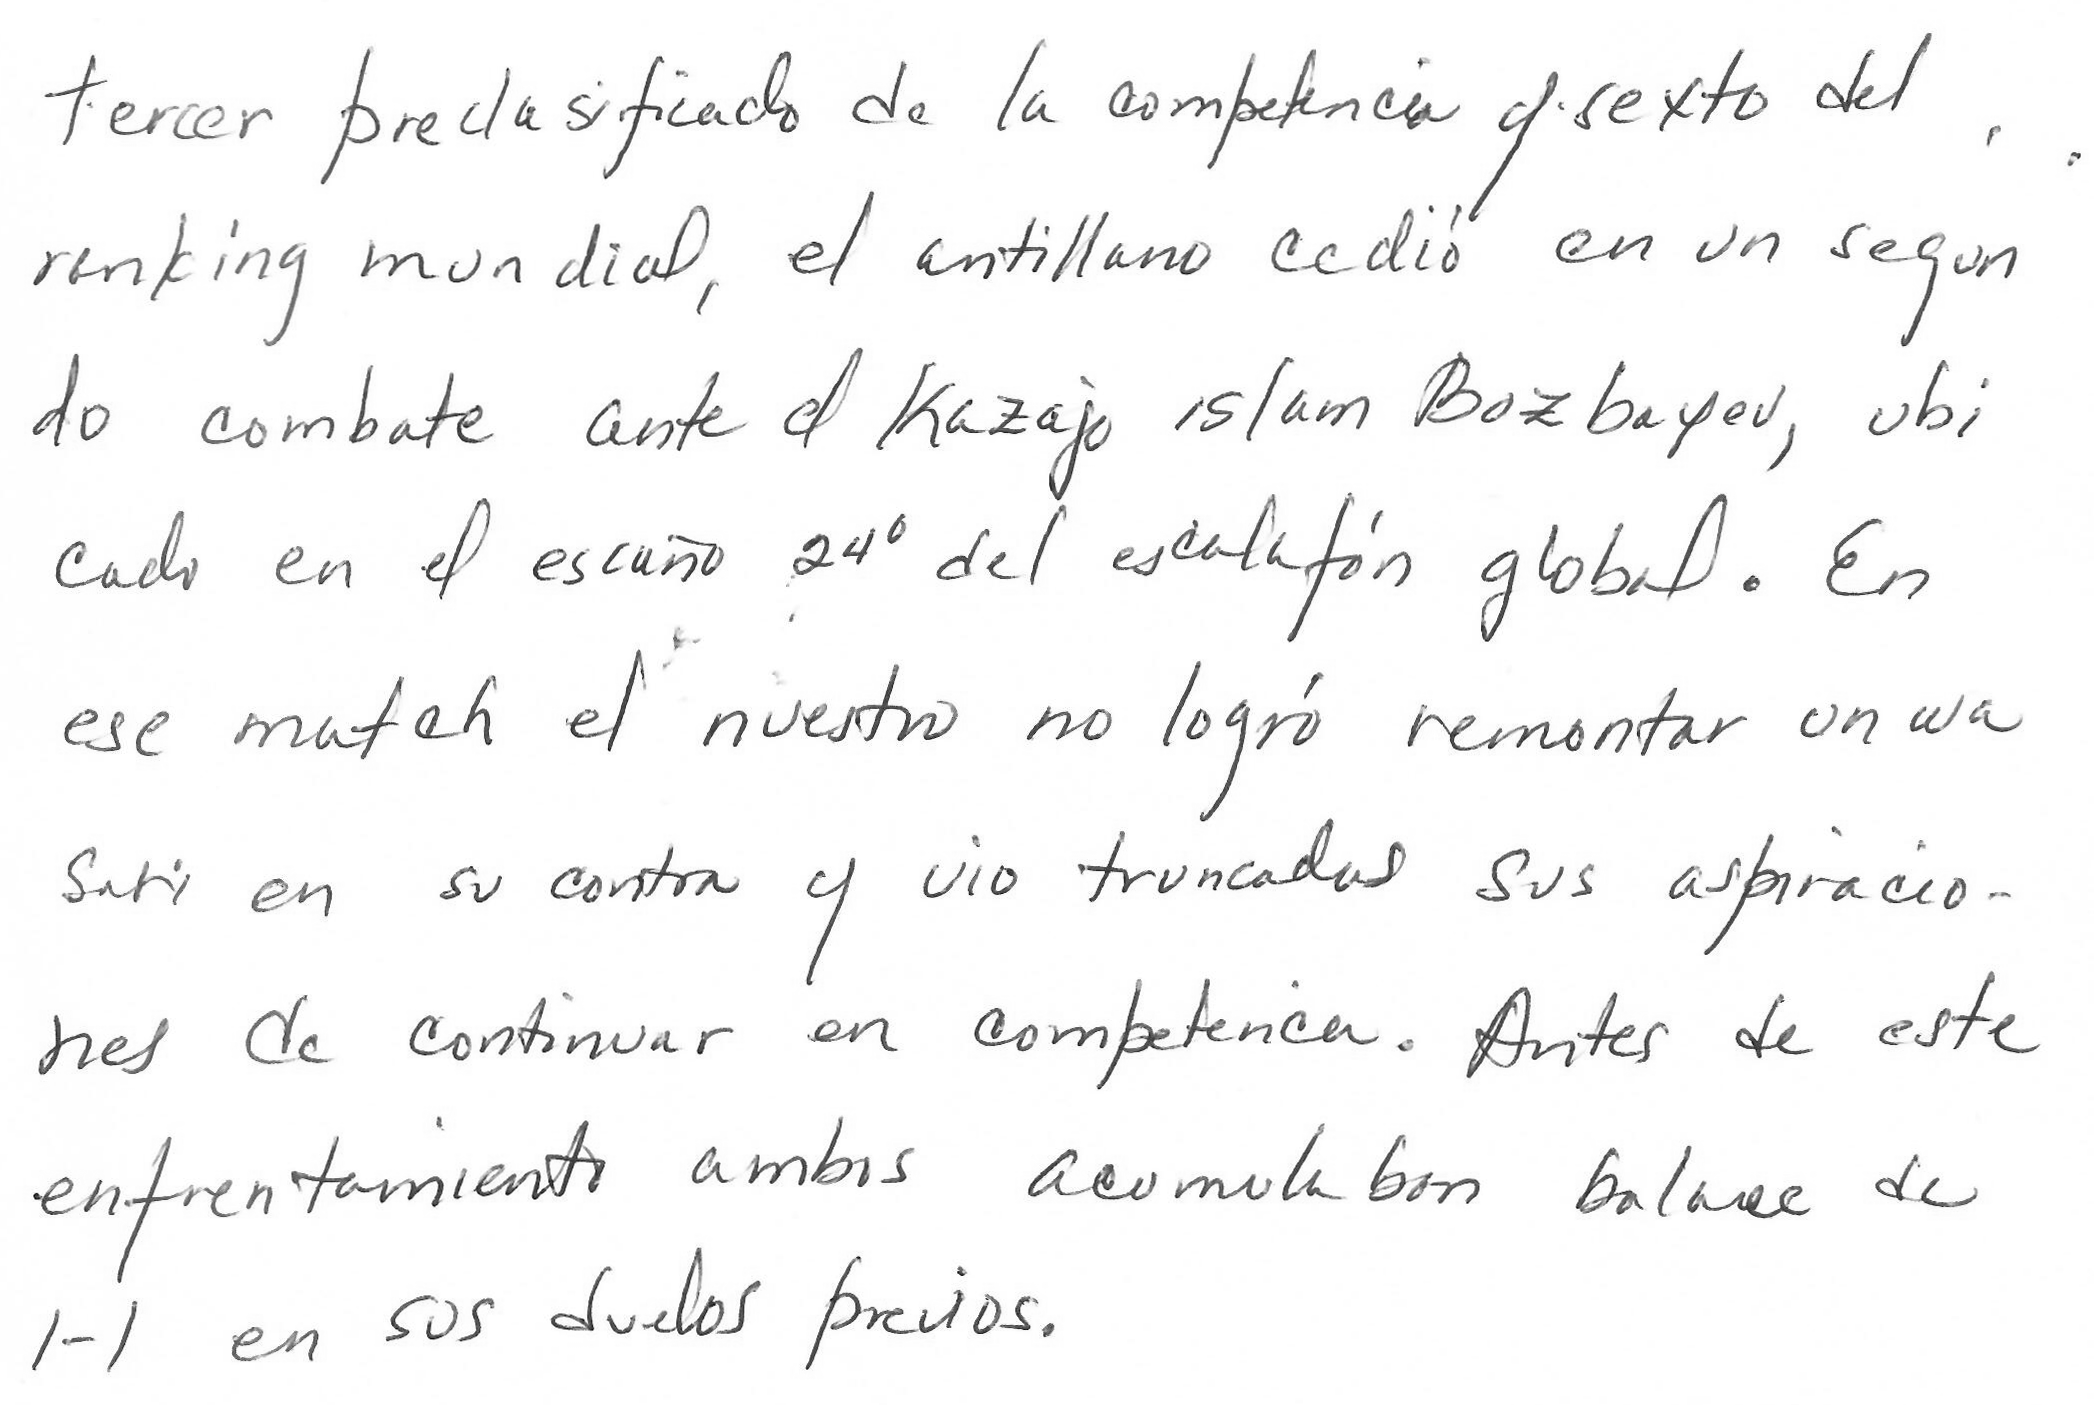 tercer preclasificado de la competencia y sexto del
ranking mundial, el antillano cedió en un segun
do combate ante el Kazajo islam Bozbayev, ubi
cado en el escaño 24° del escalafón global. En
ese match el nuestro no logró remontar un wa
sari en su contra y vio truncadas sus aspiracio-
nes de continuar en competencia. Antes de este
enfrentamiento ambos acumulaban balance de
1-1 en sus duelos previos.